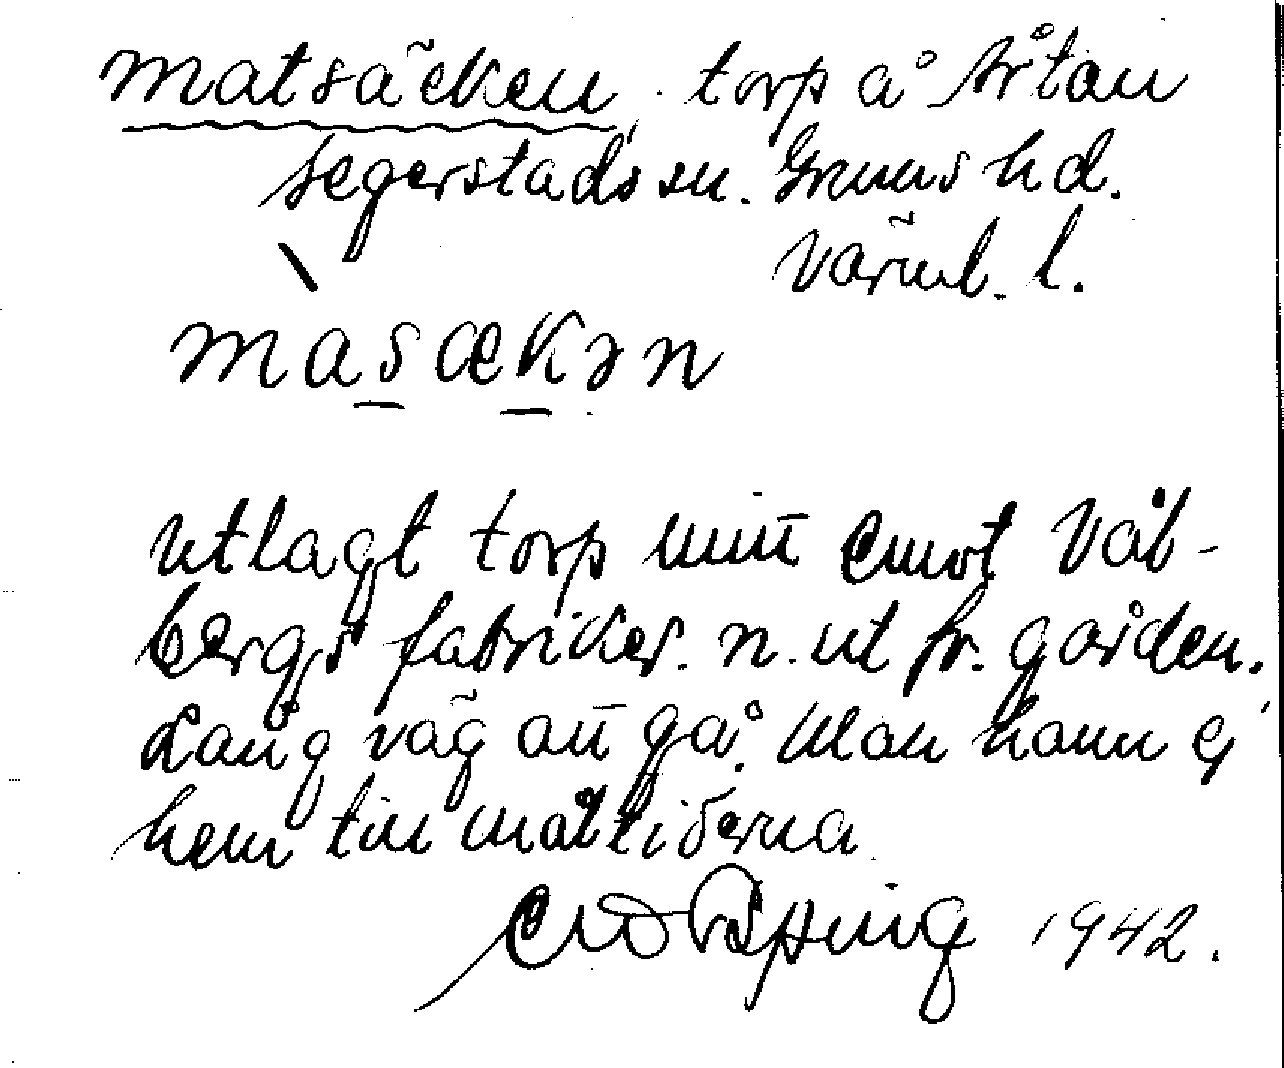 Matsäcken, torp å Nråtan
Segerstads sn. Grums hd.
Värml. l.
masækən
Utlagt torp mitt emot Vål-
bergs fabriker. n. ut fr. gården.
Lång väg att gå. Man hann ej
hem till måltiderna
1942.